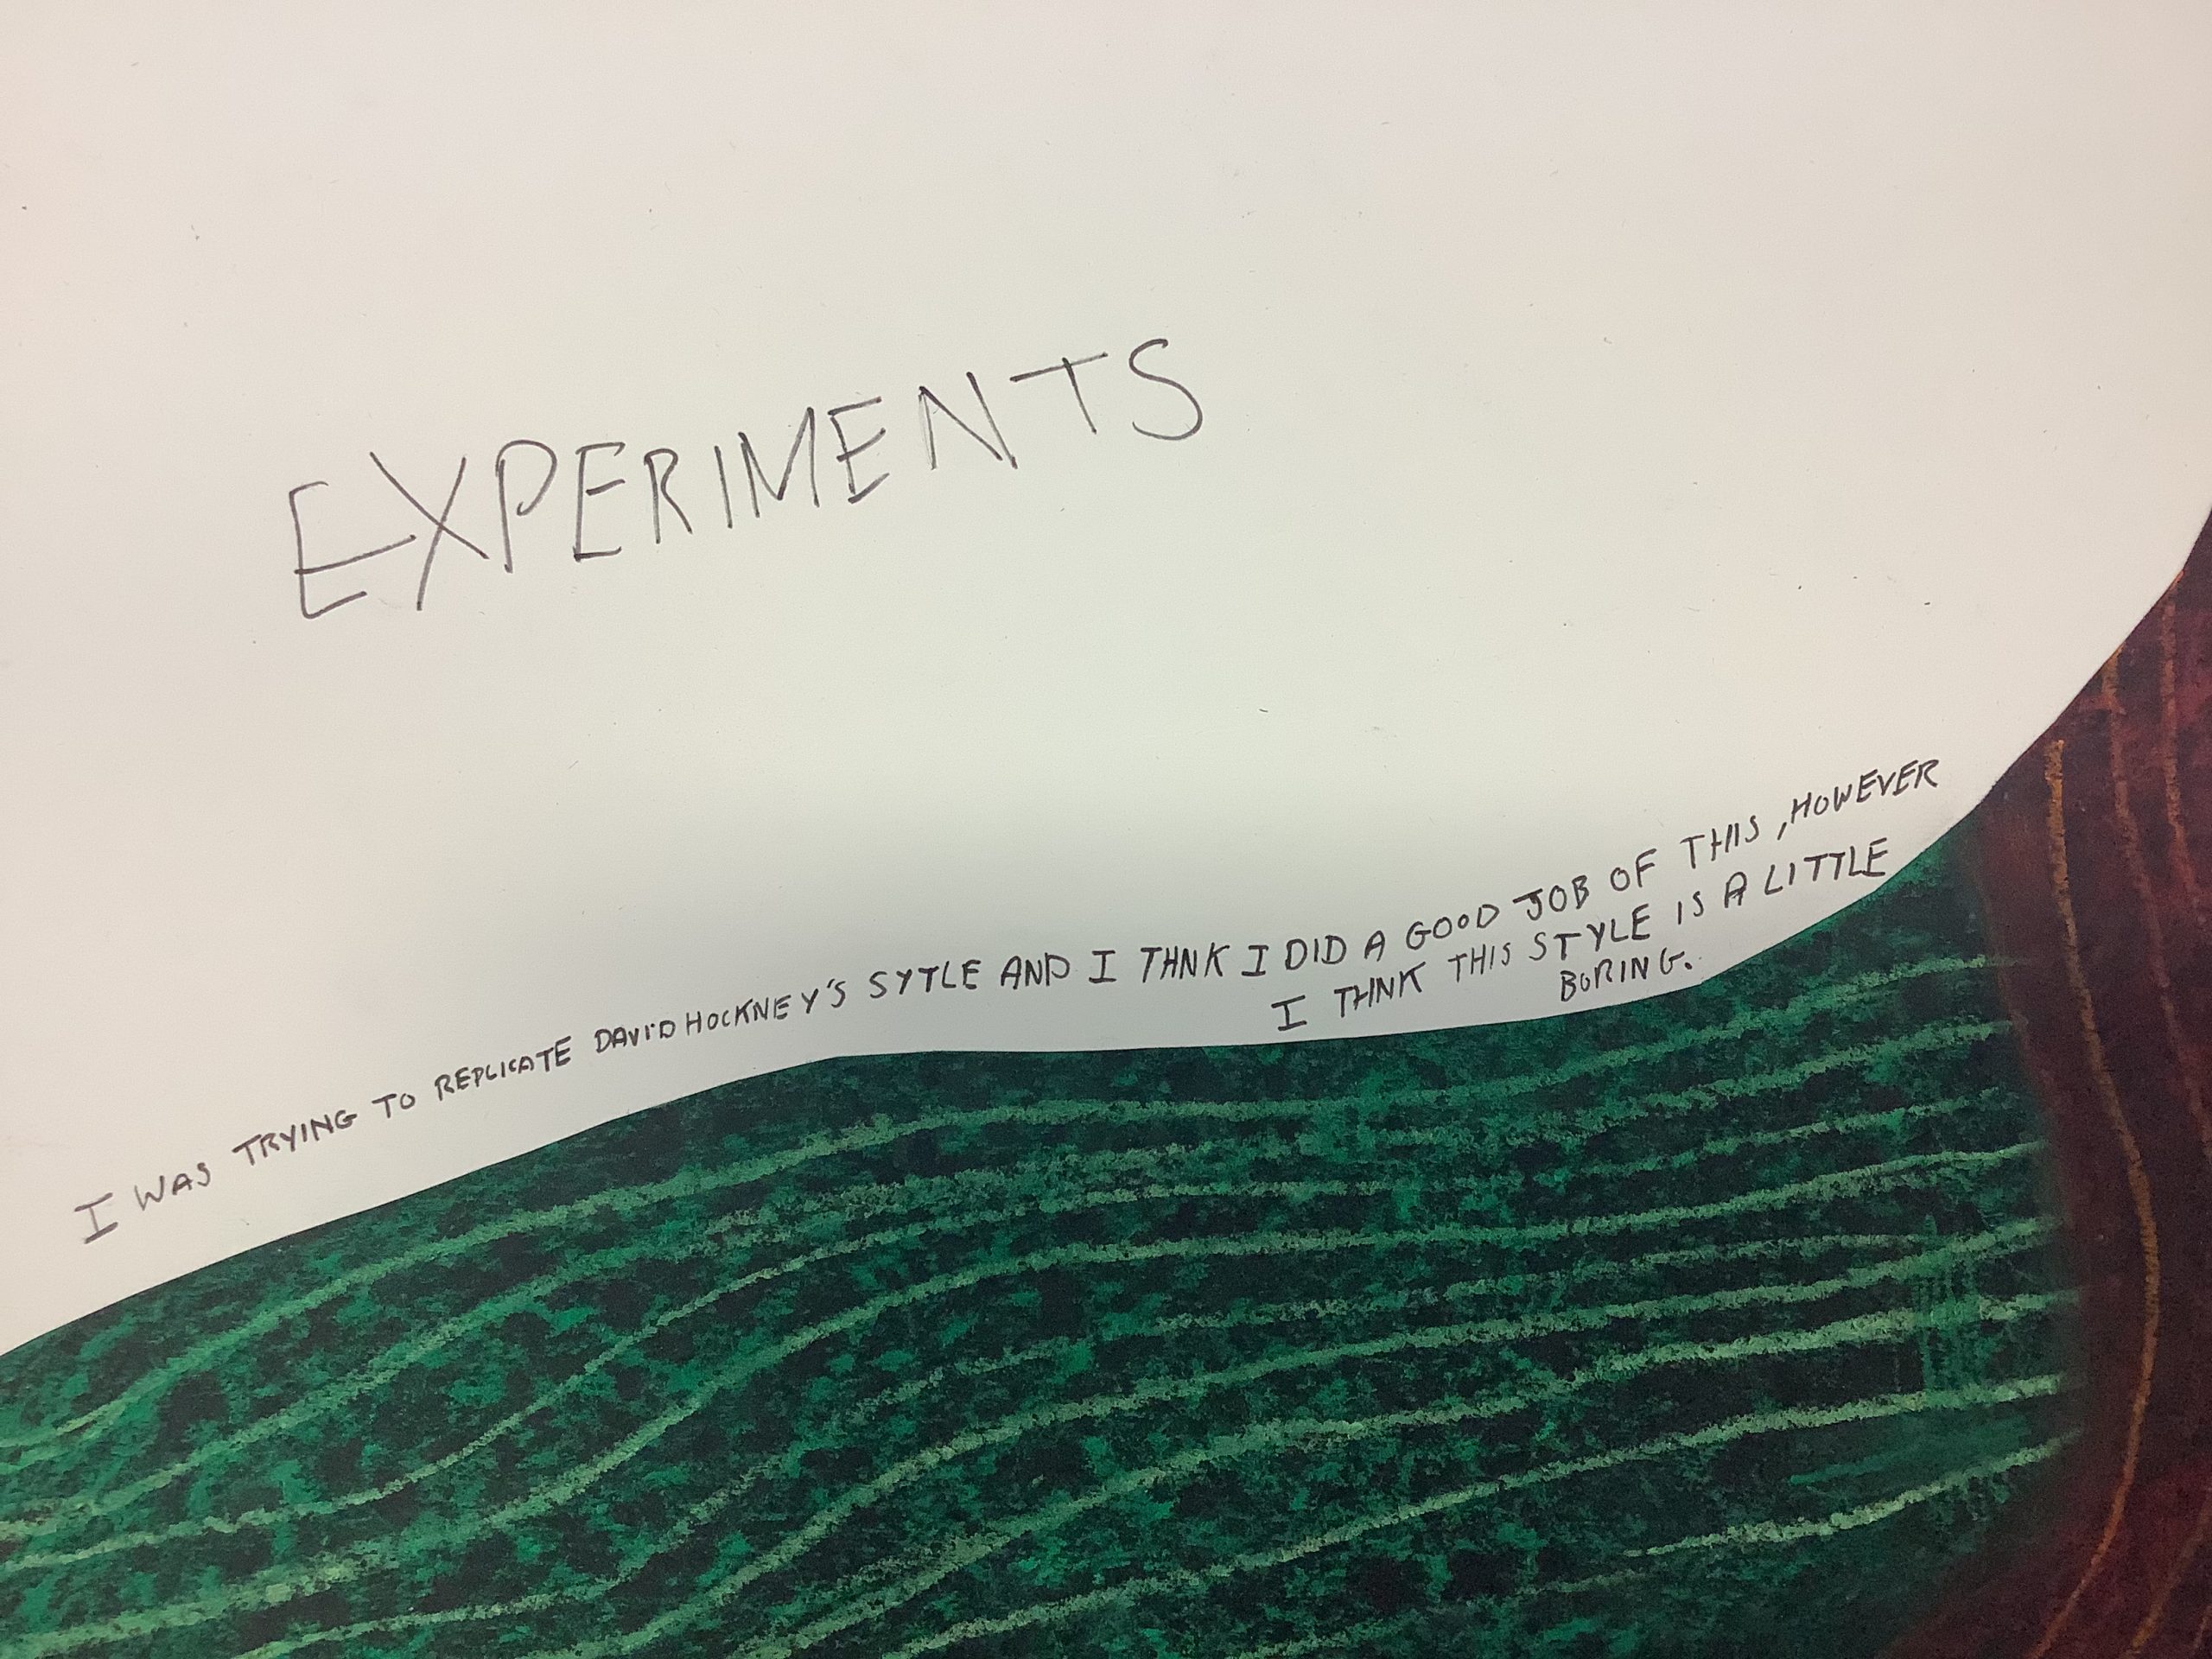 EXPERIMENTS
I WAS TRYING TO REPLICATE DAVID HOCKNEY'S SYTLE AND I THNK I DID A GOOD JOB OF THIS, HOWEVER
I THINK THIS STYLE IS A LITTLE
BORING.